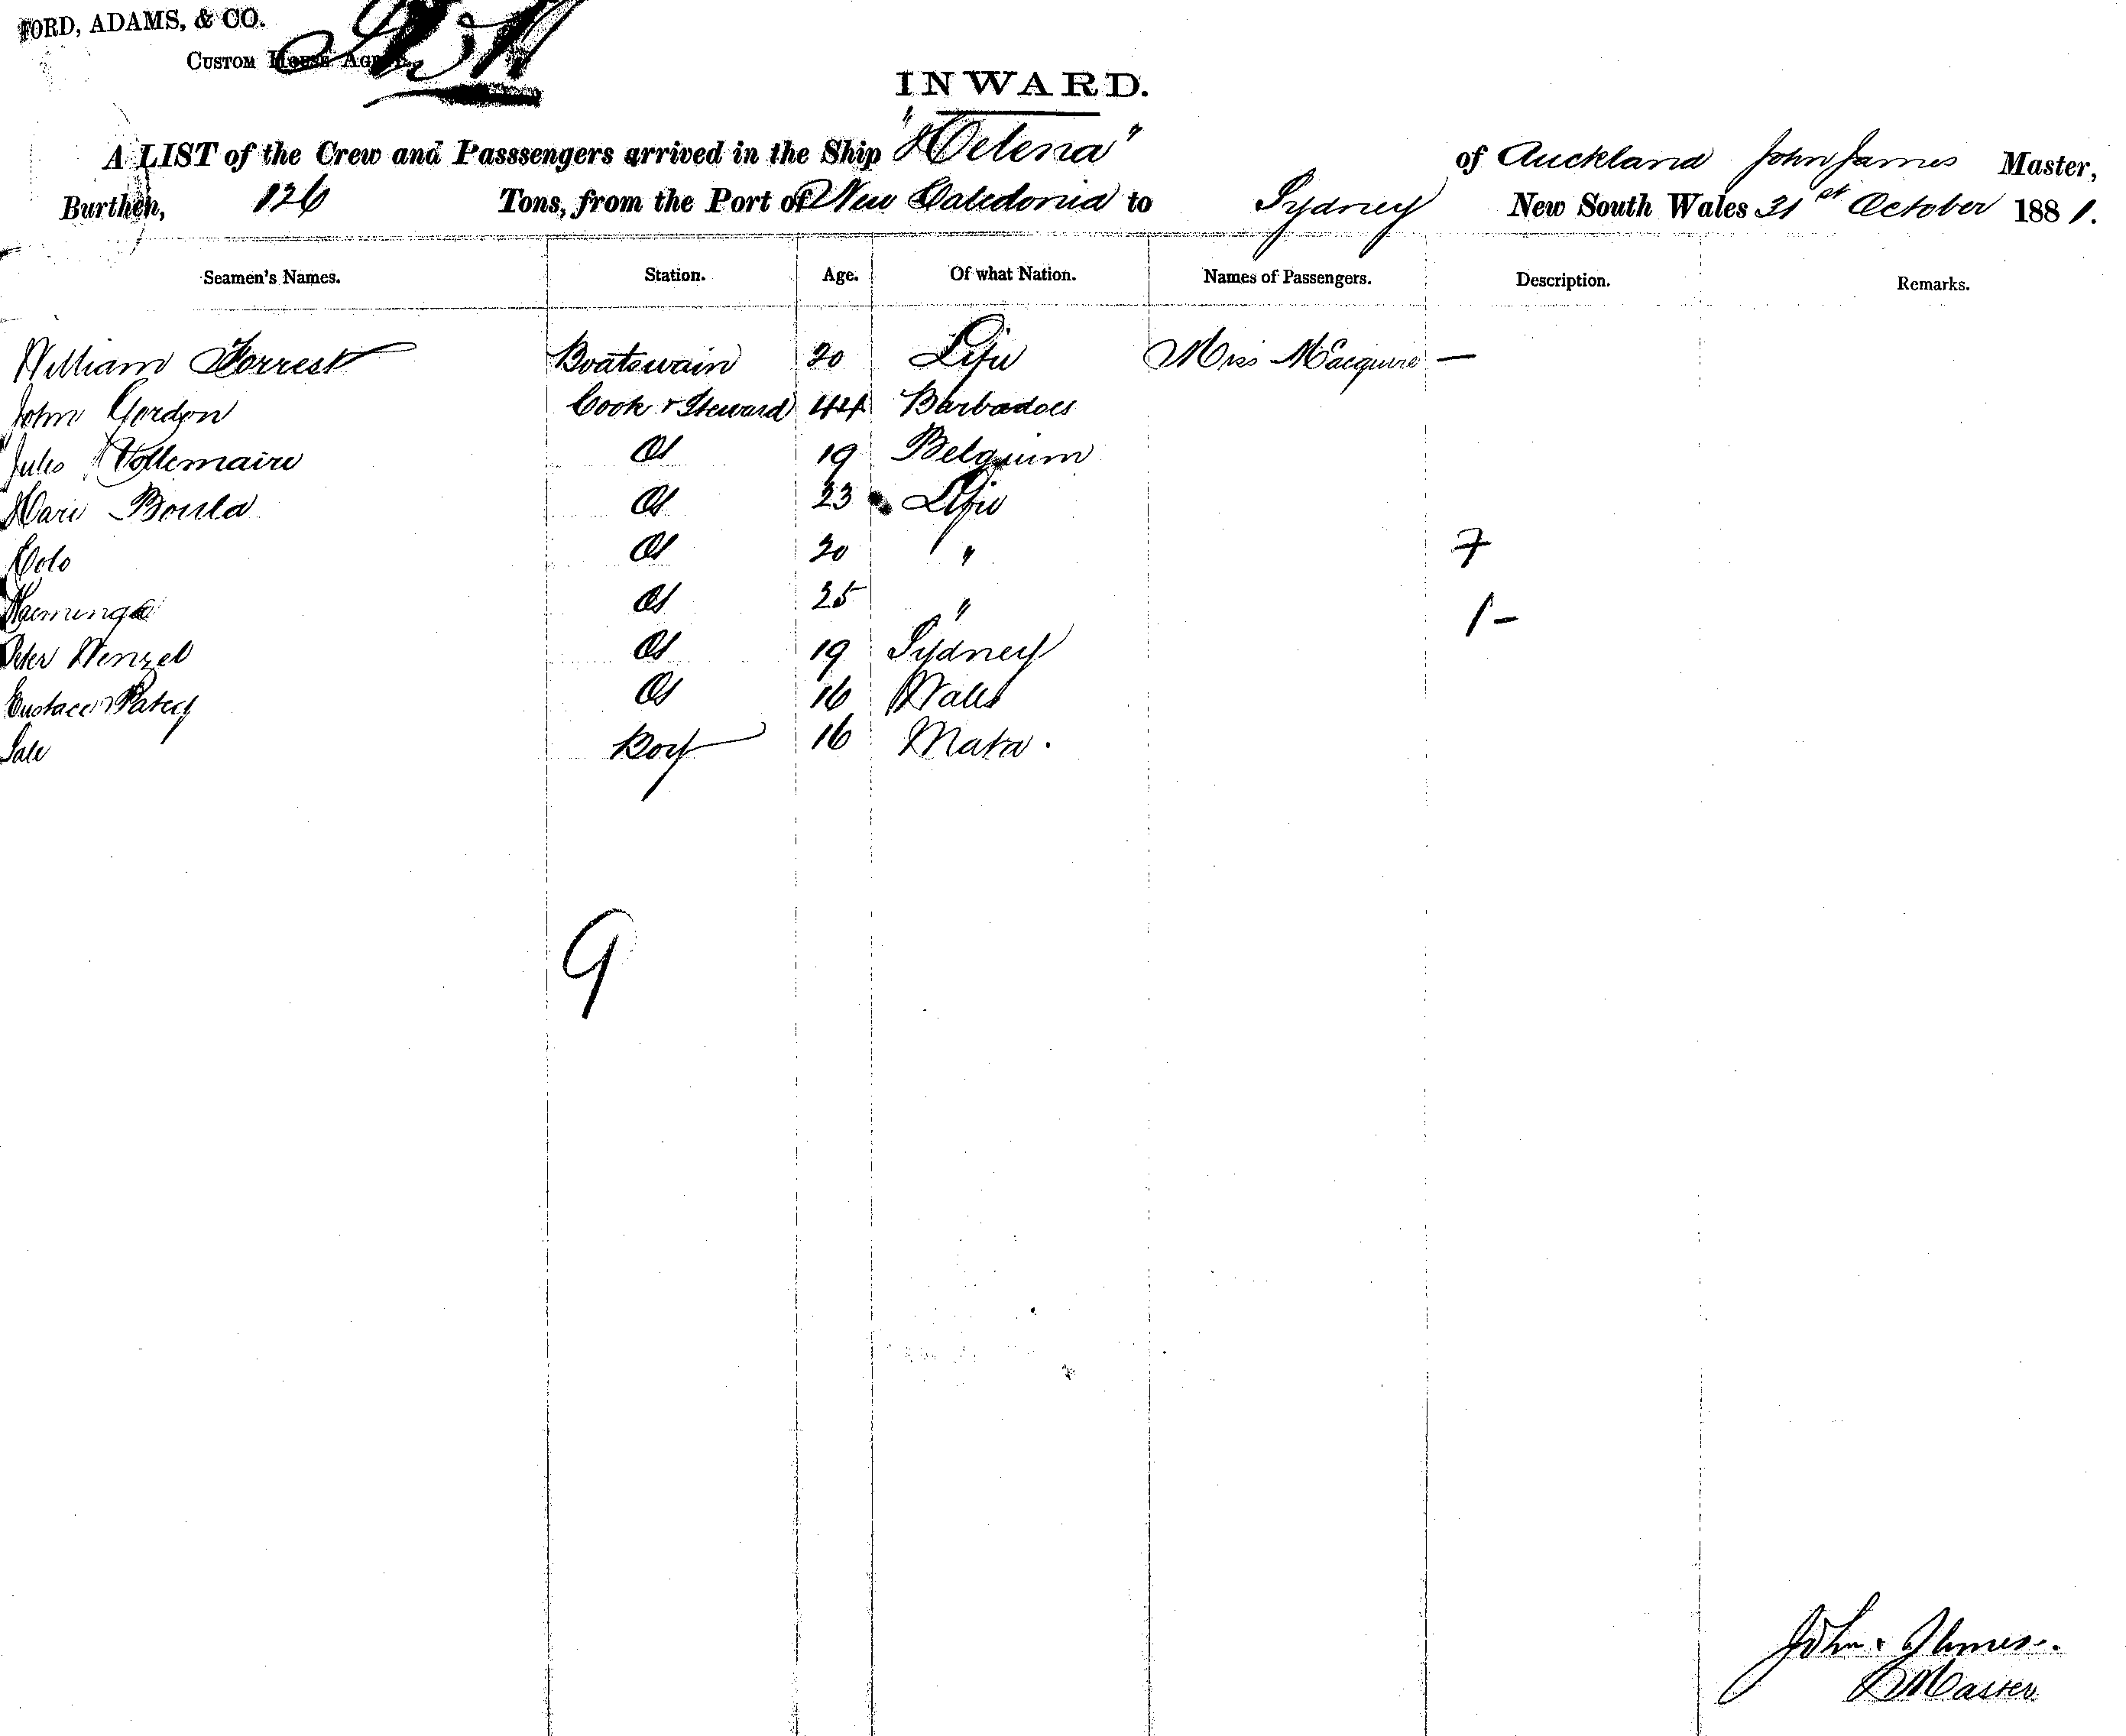 FORD, ADAMS, & CO.
CUSTOM HOUSE AGENTS
INWARD.
A LIST of the Crew and Passsengers arrived in the Ship "Helena" of Auckland John James Master,
Burthen, 126 Tons, from the Port of New Caledonia to Sydney New South Wales 31st October 1881.
Seamen's Names. Station. Age. Of what Nation. Names of Passengers. Description. Remarks.
William Forrest Boatswain 20 Lifu Miss Macquire —
John Gordon Cook & Steward 44 Barbadoes
Jules Os 19 Belguim
Boula Os 23 Lifu
Os 20 "
7
Os 25 "
1 -
Peter Wenzel Os 19 Sydney
Eustace Os 16 Wales
Sale Boy 16 Mata.
9
John James.
Master